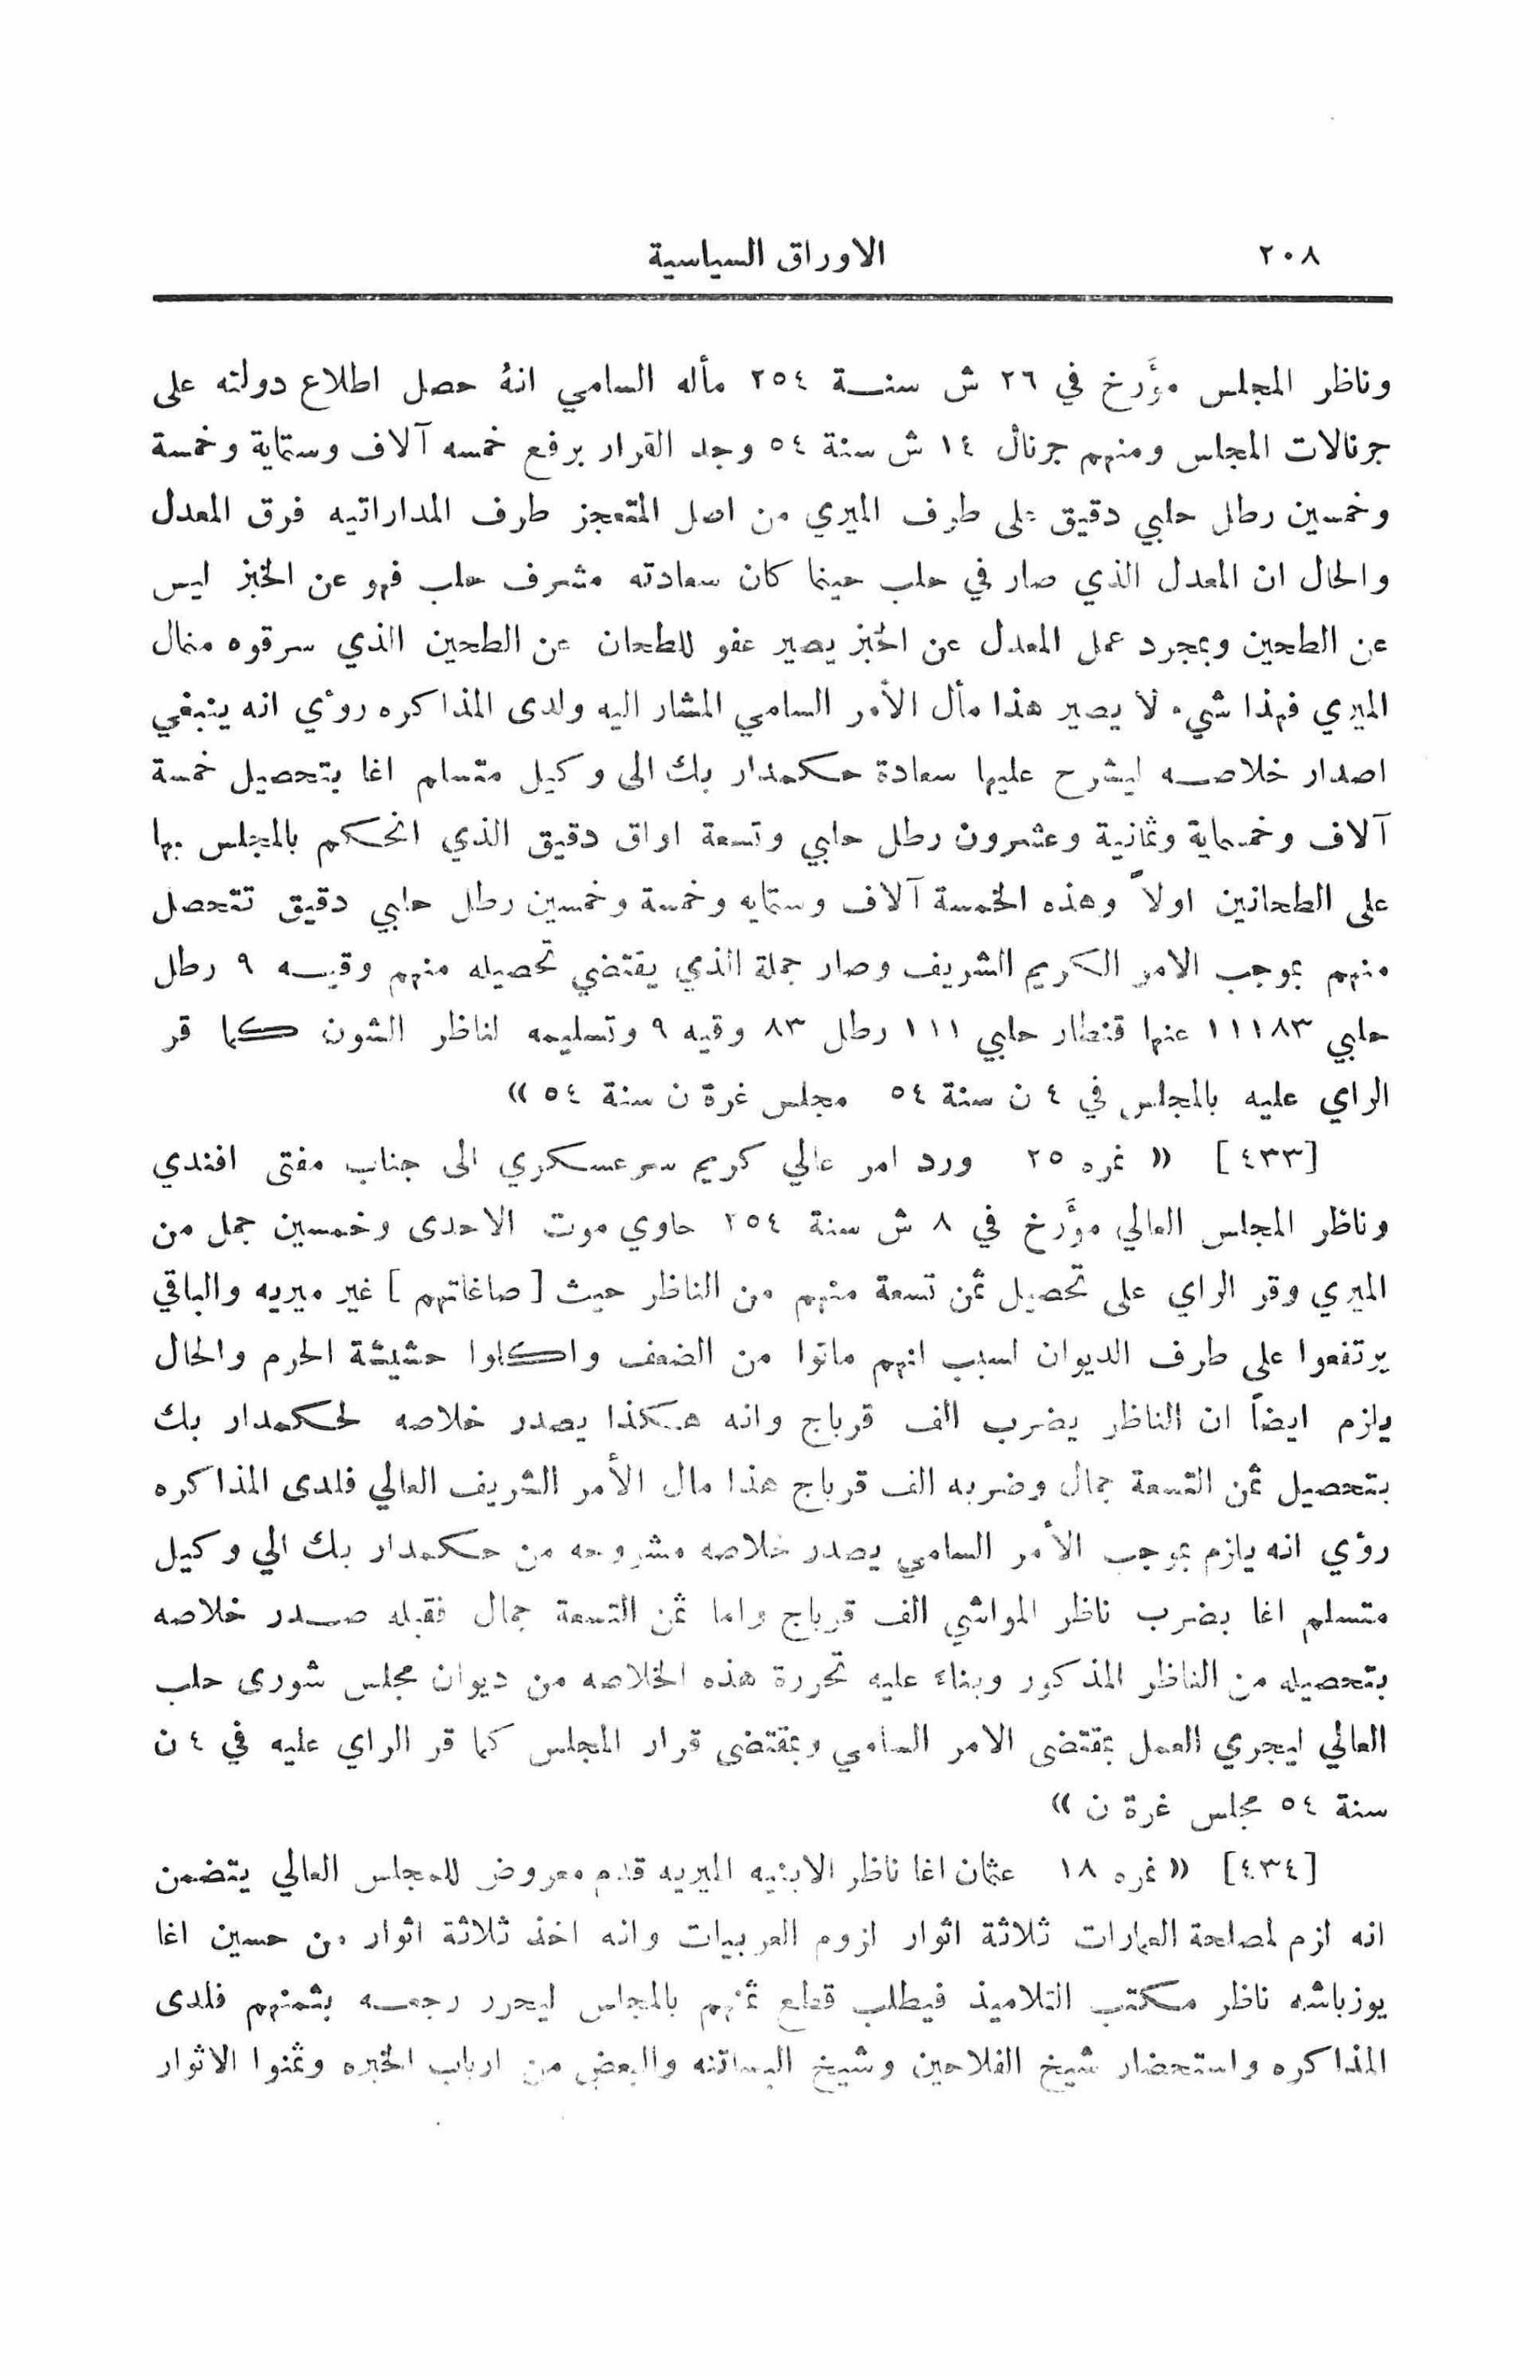 ٢٠٨ الاوراق السياسية
وناظر المجلس مؤَرخ في ٢٦ ش سنة ٢٥٤ مأله السامي انهُ حصل اطلاع دولته على
جرنالات المجلس ومنهم جرنال ١٤ ش سنة ٥٤ وجد القرار برفع خمسه آلاف وستماية وخمسة
وخمسين رطل حلبي دقيق على طرف الميري من اصل المتعجز طرف المداراتيه فرق المعدل
والحال ان المعدل الذي صار في حلب حينما كان سعادته مشرف حلب فهو عن الخبز ليس
عن الطحين وبمجرد عمل المعدل عن الخبز يصير عفو للطحان عن الطحين الذي سرقوه منمال
الميري فهذا شيء لا يصير هذا مأل الأمر السامي المشار اليه ولدى المذاكره روئي انه ينبغي
اصدار خلاصه ليشرح عليها سعادة حكمدار بك الى وكيل متسلم اغا بتحصيل خمسة
آلاف وخمسماية وثمانية وعشرون رطل حلبي وتسعة اواق دقيق الذي انحكم بالمجلس بها
على الطحانين اولاً وهذه الخمسة آلاف وستمايه وخمسة وخمسين رطل حلبي دقيق تتحصل
منهم بموجب الامر الكريم الشريف وصار جملة الذي يقتضي تحصيله منهم وقيه ٩ رطل
حلبي ١١١٨٣ عنها قنطار حلبي ١١١ رطل ٨٣ وقيه ٩ وتسليمه لناظر الشون كما قر
الراي عليه بالمجلس في ٤ ن سنة ٥٤ مجلس غرة ن سنة ٥٤ »
[٤٣٣] « نمره ٢٥ ورد امر عالي كريم سرعسكري الى جناب مفتى افندي
وناظر المجلس العالي مؤَرخ في ٨ ش سنة ٢٥٤ حاوي موت الاحدى وخمسين جمل من
الميري وقر الراي على تحصيل ثمن تسعة منهم من الناظر حيث [صاغاتهم] غير ميريه والباقي
يرتفعوا على طرف الديوان لسبب انهم ماتوا من الضعف واكلوا حشيشة الحرم والحال
يلزم ايضاً ان الناظر يضرب الف قرباج وانه هكذا يصدر خلاصه لحكمدار بك
بتحصيل ثمن التسعة جمال وضربه الف قرباج هذا مال الأمر الشريف العالي فلدى المذاكره
رؤي انه يلزم بموجب الأمر السامي يصدر خلاصه مشروحه من حكمدار بك الي وكيل
متسلم اغا بضرب ناظر المواشي الف قرباج واما ثمن التسعة جمال فقبله صدر خلاصه
بتحصيله من الناظر المذكور وبناء عليه تحررة هذه الخلاصه من ديوان مجلس شورى حلب
العالي ليجري العمل بمقتضى الامر السامي وبمقتضى قرار المجلس كما قر الراي عليه في ٤ ن
سنة ٥٤ مجلس غرة ن »
[٤٣٤] « نمره ١٨ عثمان اغا ناظر الابنيه الميريه قدم معروض للمجلس العالي يتضمن
انه لزم لمصلحة العمارات ثلاثة اثوار لزوم العربيات وانه اخذ ثلاثة اثوار من حسين اغا
يوزباشه ناظر مكتب التلاميذ فيطلب قطع ثمنهم بالمجلس ليحرر رجعه بثمنهم فلدى
المذاكره واستحضار شيخ الفلاحين وشيخ البساتنه والبعض من ارباب الخبره وثمنوا الاثوار